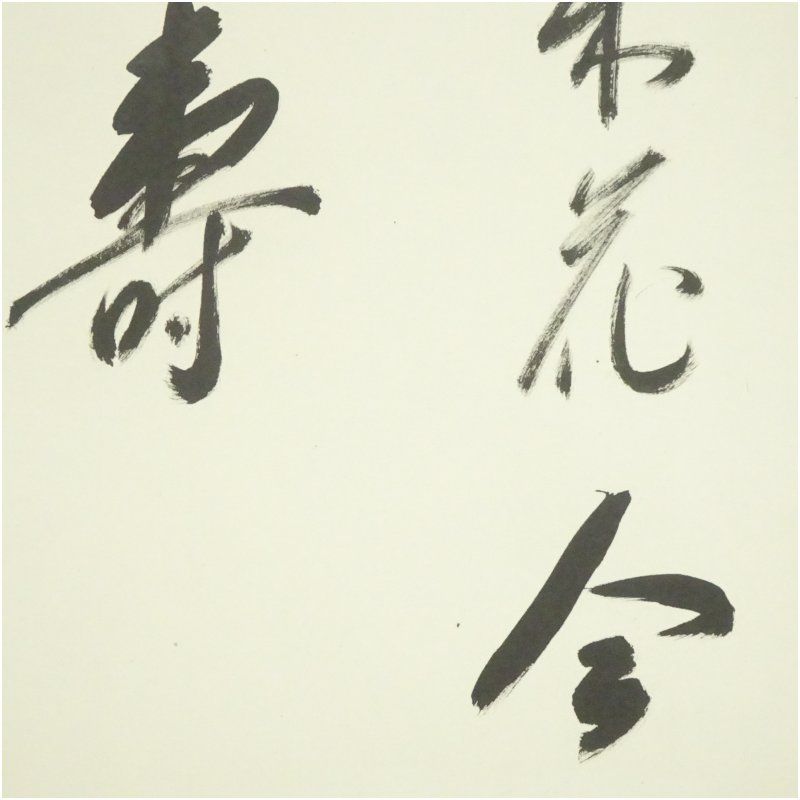 花今
壽